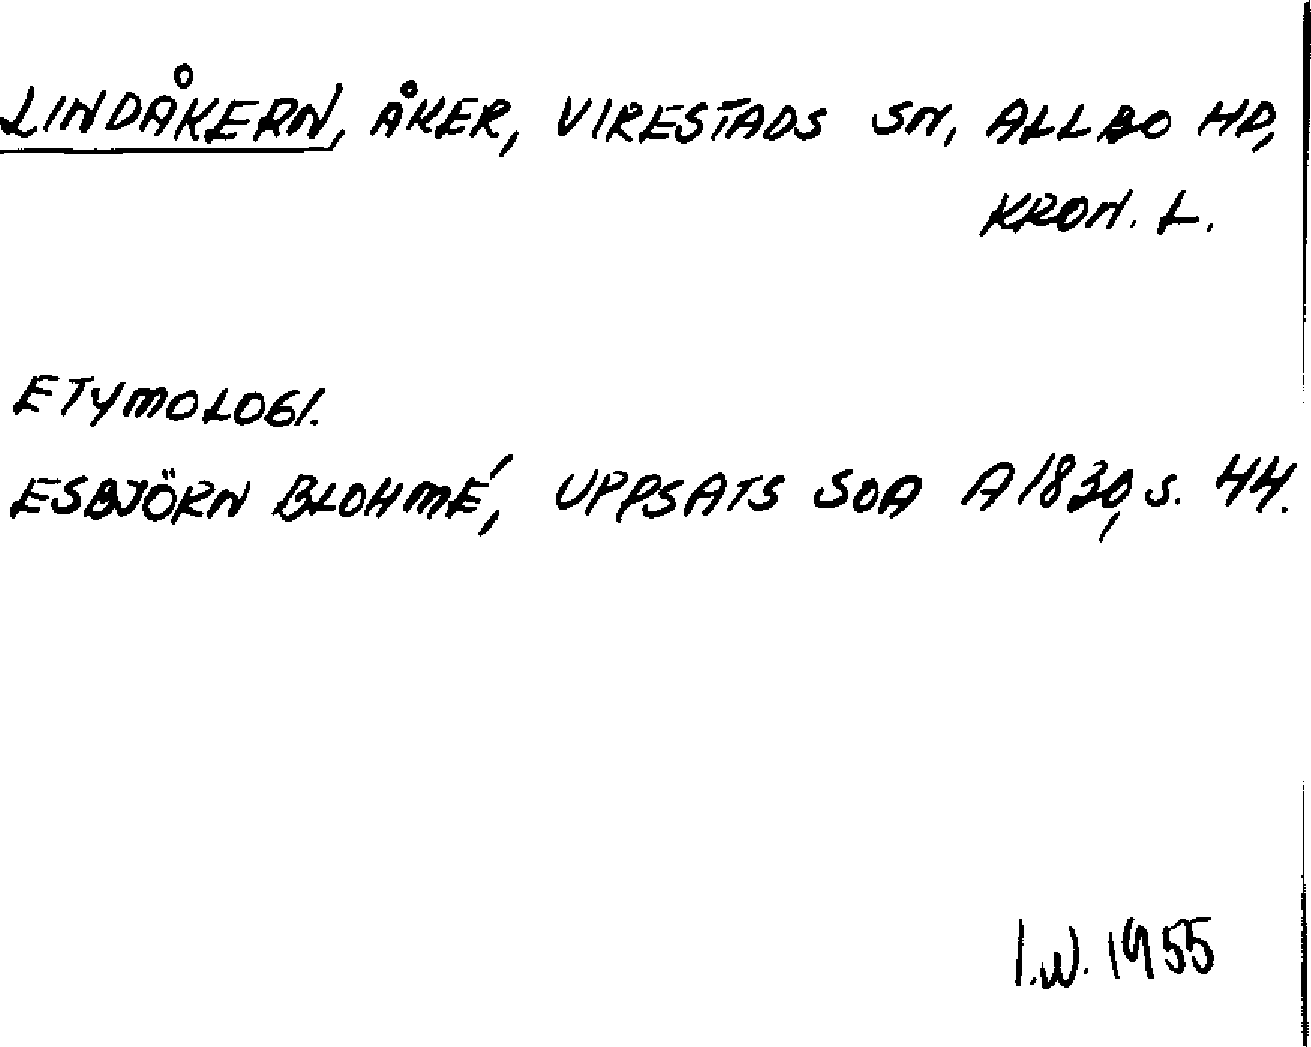 LINDÅKERN, ÅKER, VIRESTADS SN, ALLBO HD,
KRON. L.
ETYMOLOGI.
ESBJÖRN BLOHMÉ, UPPSATS SOA A 1830, S. 44.
I.W. 1955